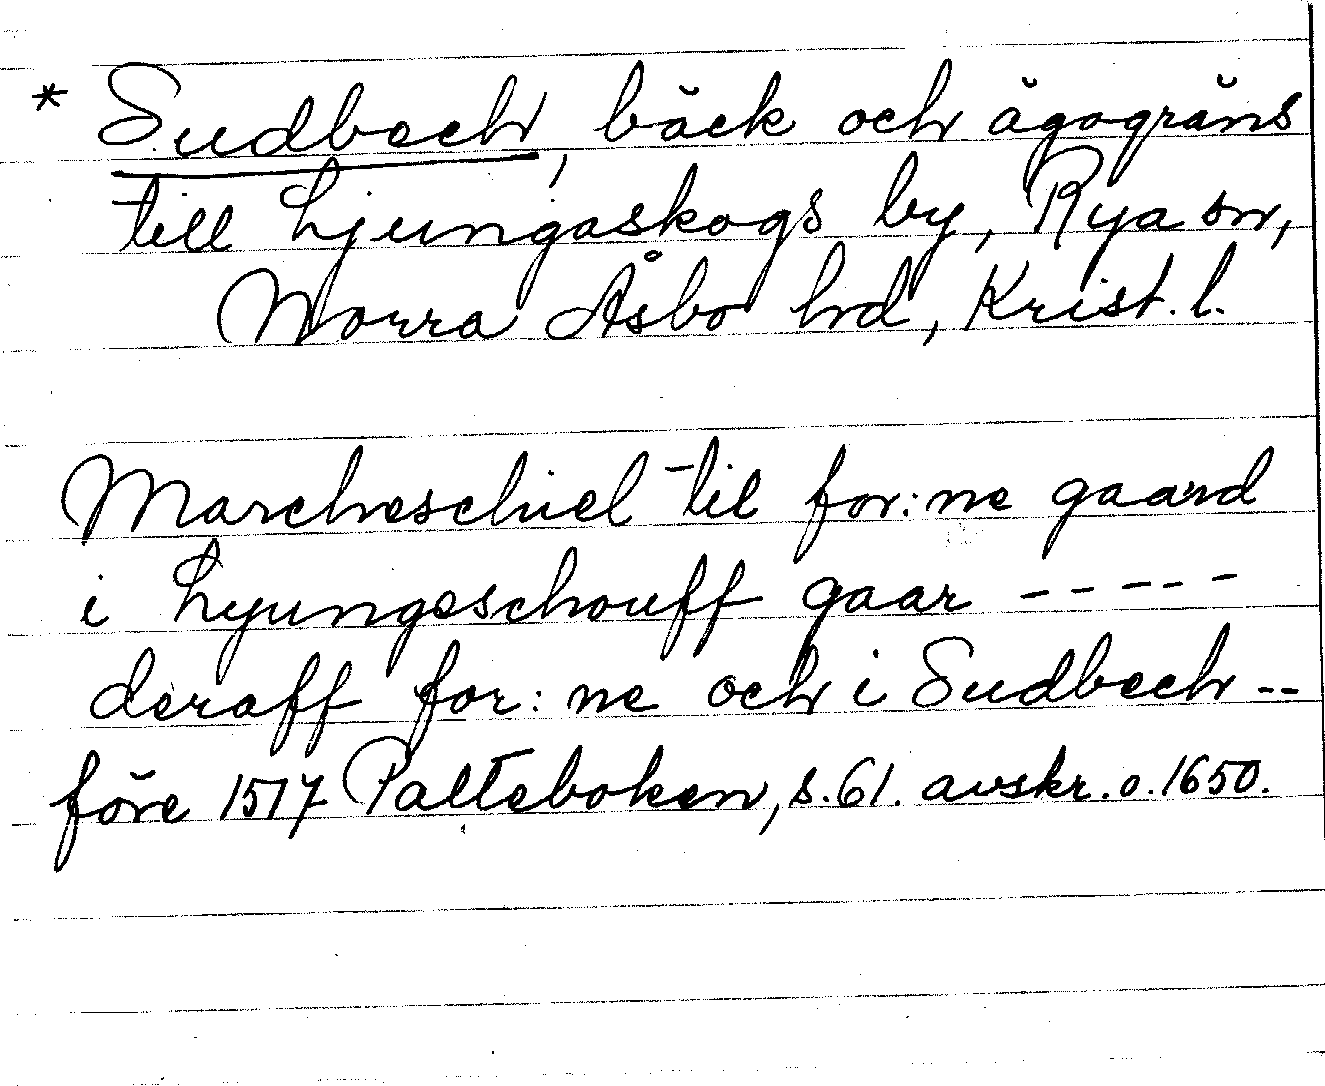 * Sudbech, bäck och ägogräns
till Ljungaskogs by, Rya sn,
Norra Åsbo hd, Krist. l.
Marcheschiel til for: ne gaard
i Lyungeschouff gaar -----
deraff for: ne och i Sudbech --
före 1517 Palteboken, s. 61. avskr. o. 1650.